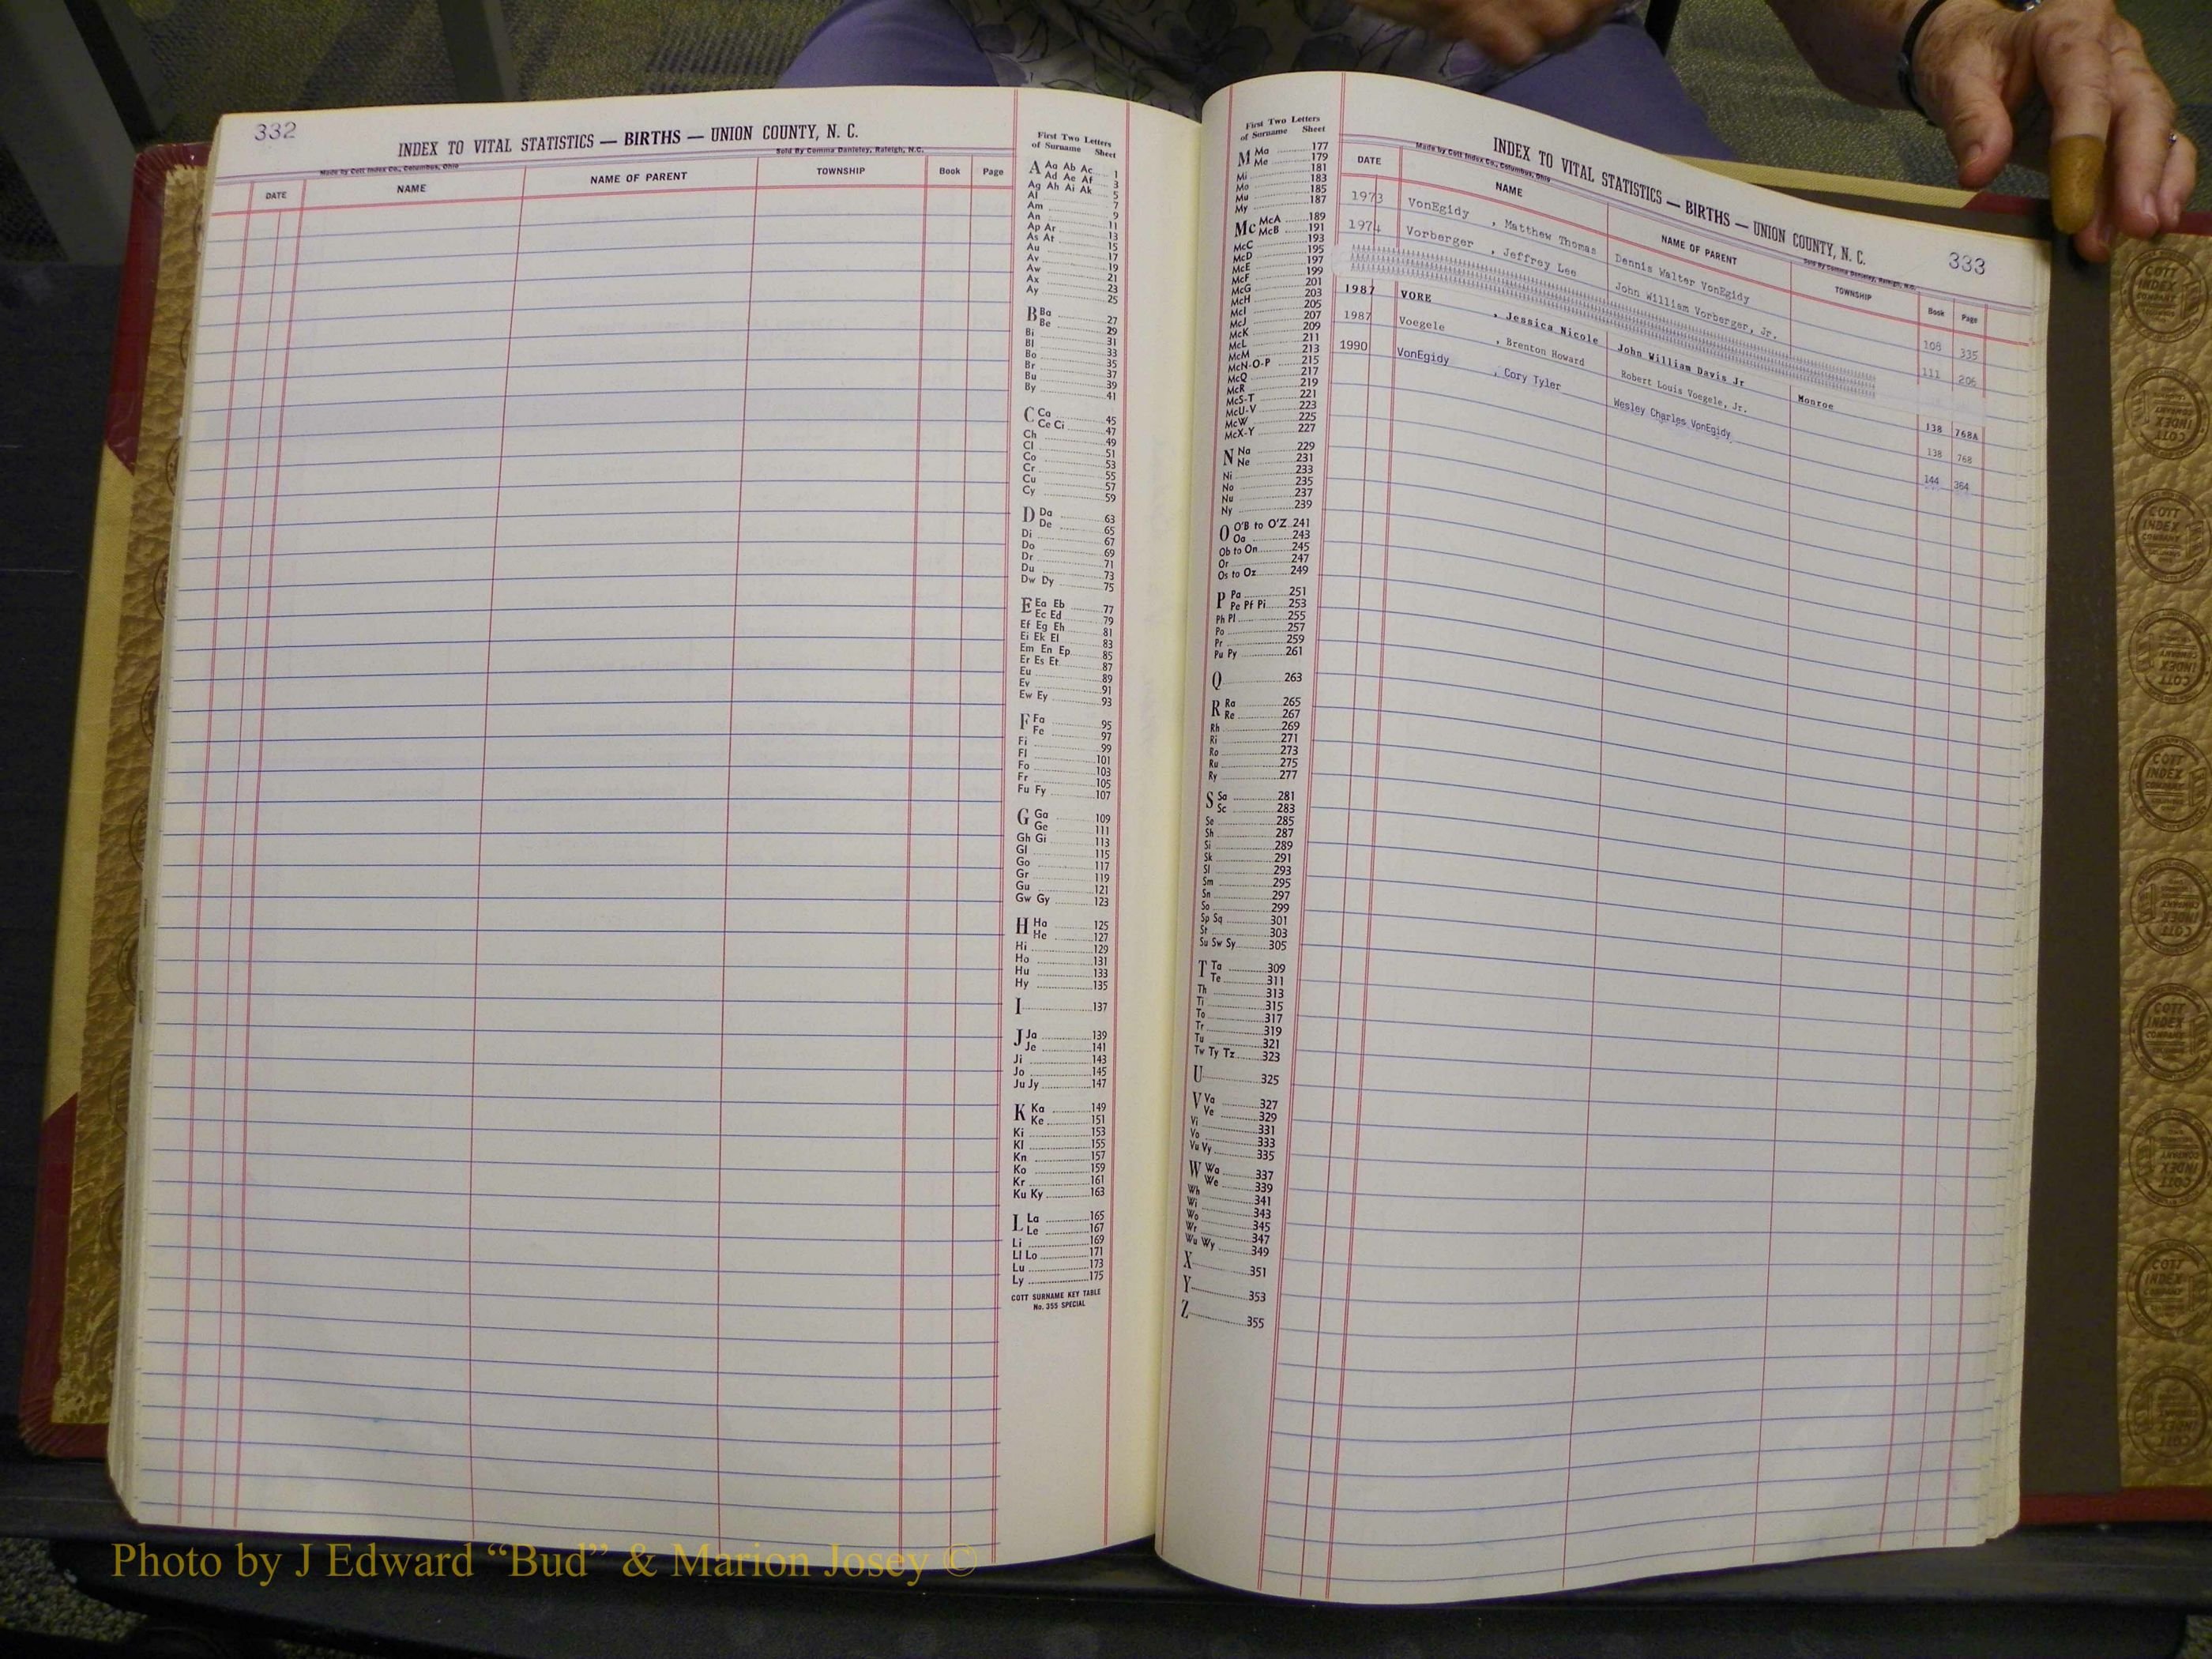 332
INDEX TO VITAL STATISTICS — BIRTHS — UNION COUNTY, N. C.
Made by Cott Index Co., Columbus, Ohio Sold By Comma Danieley, Raleigh, N.C.
DATE NAME NAME OF PARENT TOWNSHIP Book Page
First Two Letters
of Surname Sheet
A Aa Ab Ac 1
Ad Ae Af 3
Ag Ah Ai Ak 5
Al 7
Am 9
An 11
Ap Ar 13
As At 15
Au 17
Av 19
Aw 21
Ax 23
Ay 25
B Ba 27
Be 29
Bi 31
Bl 33
Bo 35
Br 37
Bu 39
By 41
C Ca 45
Ce Ci 47
Ch 49
Cl 51
Co 53
Cr 55
Cu 57
Cy 59
D Da 63
De 65
Di 67
Do 69
Dr 71
Du 73
Dw Dy 75
E Ea Eb 77
Ec Ed 79
Ef Eg Eh 81
Ei Ek El 83
Em En Ep 85
Er Es Et 87
Eu 89
Ev 91
Ew Ey 93
F Fa 95
Fe 97
Fi 99
Fl 101
Fo 103
Fr 105
Fu Fy 107
G Ga 109
Ge 111
Gh Gi 113
Gl 115
Go 117
Gr 119
Gu 121
Gw Gy 123
H Ha 125
He 127
Hi 129
Ho 131
Hu 133
Hy 135
I 137
J Ja 139
Je 141
Ji 143
Jo 145
Ju Jy 147
K Ka 149
Ke 151
Ki 153
Kl 155
Kn 157
Ko 159
Kr 161
Ku Ky 163
L La 165
Le 167
Li 169
Ll Lo 171
Lu 173
Ly 175
COTT SURNAME KEY TABLE
No. 355 SPECIAL
First Two Letters
of Surname Sheet
M Ma 177
Me 179
Mi 181
Mo 183
Mu 185
My 187
Mc McA 189
McB 191
McC 193
McD 195
McE 197
McF 199
McG 201
McH 203
McI 205
McJ 207
McK 209
McL 211
McM 213
McN-O-P 215
McQ 217
McR 219
McS-T 221
McU-V 223
McW 225
McX-Y 227
N Na 229
Ne 231
Ni 233
No 235
Nu 237
Ny 239
O O'B to O'Z 241
Oa 243
Ob to On 245
Or 247
Os to Oz 249
P Pa 251
Pe Pf Pi 253
Ph Pl 255
Po 257
Pr 259
Pu Py 261
Q 263
R Ra 265
Re 267
Rh 269
Ri 271
Ro 273
Ru 275
Ry 277
S Sa 281
Sc 283
Se 285
Sh 287
Si 289
Sk 291
Sl 293
Sm 295
Sn 297
So 299
Sp Sq 301
St 303
Su Sw Sy 305
T Ta 309
Te 311
Th 313
Ti 315
To 317
Tr 319
Tu 321
Tw Ty Tz 323
U 325
V Va 327
Ve 329
Vi 331
Vo 333
Vu Vy 335
W Wa 337
We 339
Wh 341
Wi 343
Wo 345
Wr 347
Wu Wy 349
X 351
Y 353
Z 355
333
INDEX TO VITAL STATISTICS — BIRTHS — UNION COUNTY, N. C.
Made by Cott Index Co., Columbus, Ohio Sold By Comma Danieley, Raleigh, N.C.
DATE NAME NAME OF PARENT TOWNSHIP Book Page
1973 VonEgidy , Matthew Thomas Dennis Walter VonEgidy 108 335
1974 Vorberger , Jeffrey Lee John William Vorberger, Jr. 111 206
1987 VORE , Jessica Nicole John William Davis Jr Monroe 138 768A
1987 Voegele , Brenton Howard Robert Louis Voegele, Jr. 138 768
1990 VonEgidy , Cory Tyler Wesley Charles VonEgidy 144 364
COTT INDEX COMPANY
Photo by J Edward “Bud” & Marion Josey ©